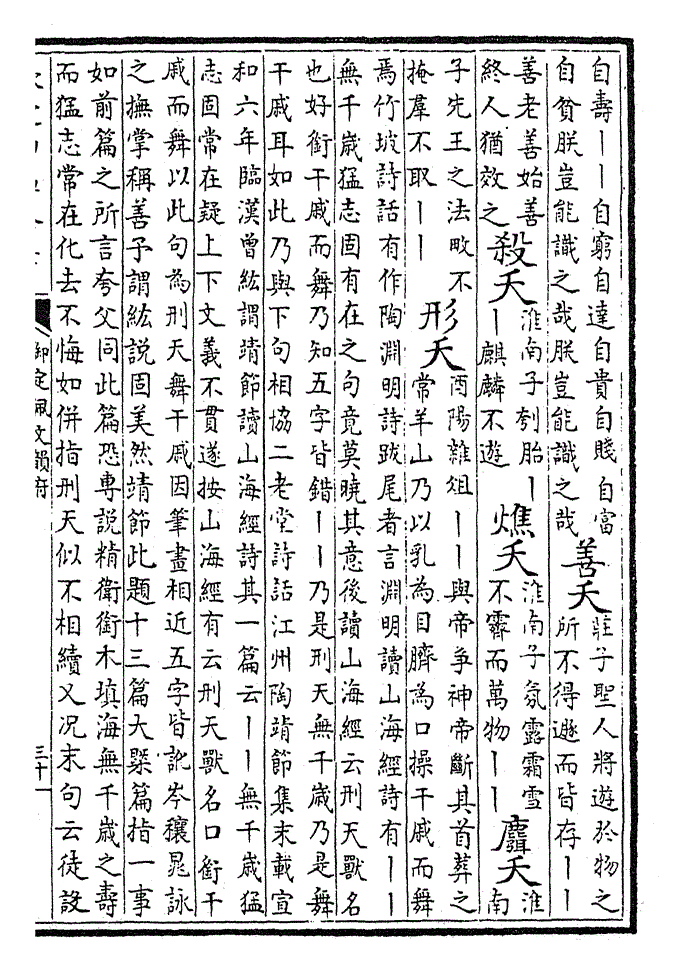 自壽丨丨自窮自達自貴自賤自富
自貧朕豈能識之哉朕豈能識之哉
善夭
莊子聖人將遊於物之
所不得遯而皆存丨丨
善老善始善
終人猶效之
殺夭
淮南子刳胎丨
丨麒麟不遊
燋夭
淮南子氛露霜雪
不霽而萬物丨丨
麛夭
淮
南
子先王之法畋不
掩羣不取丨丨
形夭
酉陽雜俎丨丨與帝爭神帝斷其首葬之
常羊山乃以乳為目臍為口操干戚而舞
焉竹坡詩話有作陶淵明詩跋尾者言淵明讀山海經詩有丨丨
無千歲猛志固有在之句竟莫曉其意後讀山海經云刑天獸名
也好銜干戚而舞乃知五字皆錯丨丨乃是刑天無千歲乃是舞
干戚耳如此乃與下句相協二老堂詩話江州陶靖節集末載宣
和六年臨漢曾紘謂靖節讀山海經詩其一篇云丨丨無千歲猛
志固常在疑上下文義不貫遂按山海經有云刑天獸名口銜干
戚而舞以此句為刑天舞干戚因筆畫相近五字皆訛岑穰晁詠
之撫掌稱善予謂紘說固美然靖節此題十三篇大槩篇指一事
如前篇之所言夸父同此篇恐專說精衛銜木填海無千歲之壽
而猛志常在化去不悔如併指刑天似不相續又況末句云徒設
御定佩文韻府
三十一